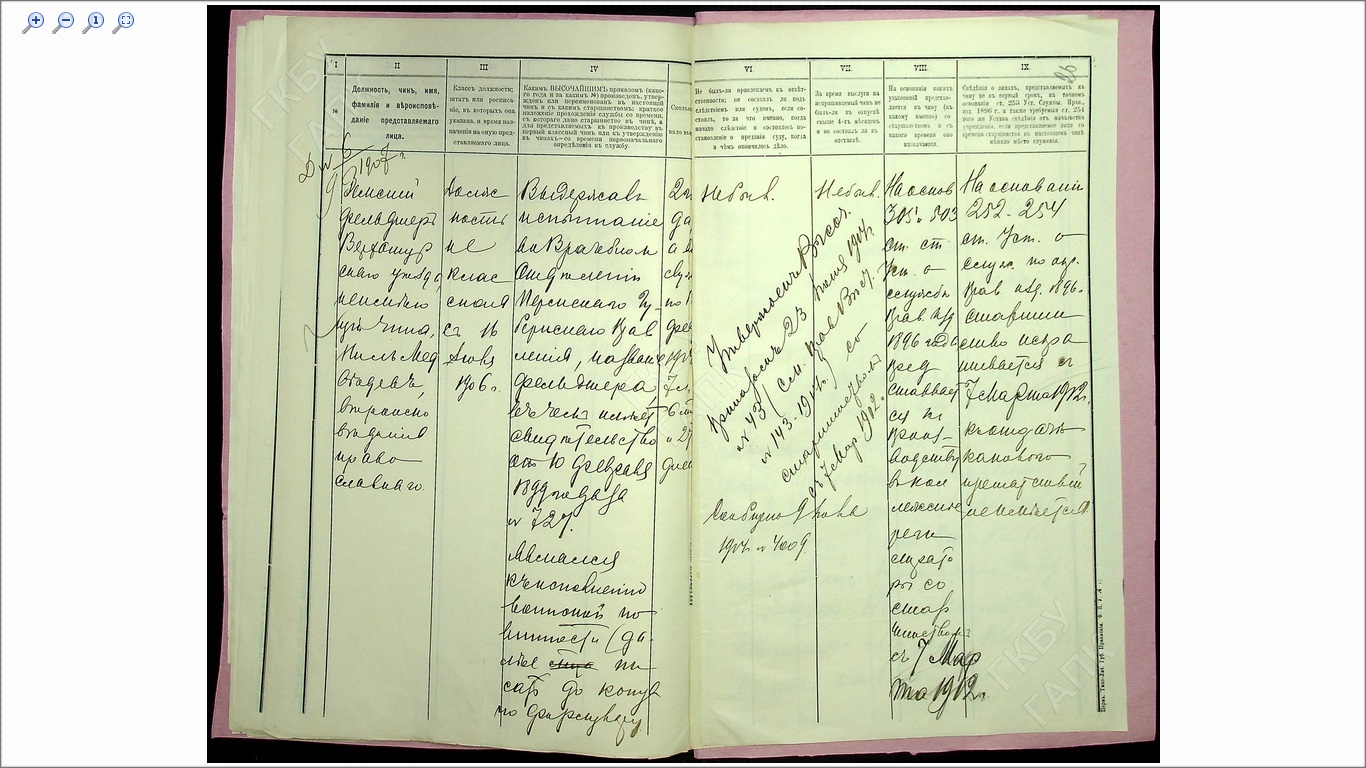 I
II
III
IV
VI.
VII.
VIII.
IX.
№
Должность, чинъ, имя,
фамилія и вѣроисповѣ-
даніе представляемаго
лица.
Классъ должности;
штатъ или росписа-
ніе, въ которыхъ она
указана, и время наз-
наченія на оную пред-
ставляемаго лица.
Какимъ ВЫСОЧАЙШИМЪ приказомъ (како-
го года и за какимъ №) произведенъ, утверж-
денъ или переименованъ въ настоящій
чинъ и съ какимъ старшинствомъ; краткое
изложеніе прохожденія службы со времени,
съ котораго дано старшинство въ чинѣ, а
для представляемыхъ къ производству въ
первый классный чинъ или къ утвержденію
въ чинахъ—со времени первоначальнаго
опредѣленія въ службу.
Сколько
Не былъ-ли привлекаемъ къ отвѣт-
ственности; не состоялъ ли подъ
слѣдствіемъ или судомъ, если со-
стоялъ, то за что именно, когда
начато слѣдствіе и состоялось по-
становленіе о преданіи суду, когда
и чѣмъ окончилось дѣло.
За время выслуги на
испрашиваемый чинъ не
былъ-ли въ отпускѣ
свыше 4-хъ мѣсяцевъ
и не состоялъ ли въ
отставкѣ.
На основаніи какихъ
узаконеній представля-
ется къ чину (къ
какому именно) со
старшинствомъ и съ
какого времени оно
назначается.
Свѣдѣнія о лицахъ, представляемыхъ къ
чину не въ первый срокъ, на точномъ
основаніи ст. 253 Уст. Службы. Прав.,
изд. 1896 г. а также требуемыя ст. 254
того же Устава свѣдѣнія отъ начальства
учрежденія, если представляемое лицо со
времени старшинства въ настоящемъ чинѣ
мѣняло мѣсто служенія.
1907 г.
Земскій
фельдшеръ
Верхотур
скаго уѣзда,
неимѣю
щій чина,
Нилъ Мед
вѣдевъ,
вѣроиспо
вѣданія
право
славнаго.
Долж
ность
не
клас
сная
съ 16
1906 г.
Выдержавъ
испытаніе
во Врачебномъ
Отдѣленіи
Пермскаго Гу-
бернскаго Прав
ленія, на званіе
фельдшера,
въ чемъ имѣетъ
свидѣтельство
отъ 10 Февраля
года за
№ 727.
Являлся
къ исполненію
воинской по-
винности (да-
лѣе пи-
сать до конца
по формуляру
Небылъ.
Небылъ.
Утвержденъ Высоч.
Приказомъ 23
№ 43
№ 143-
со
старшинствомъ
съ 7 Мар. 1902.
№ 4009
На основ
305 и 303
ст. ст.
Уст. о
службѣ
Прав. изд
1896 года
пред
ставляет
ся къ
произ-
водству
въ кол
лежскіе
реги
страто
ры со
стар
шинствомъ
съ 7 Мар
та 1902.
На основаніи
252 - 254
ст. Уст. о
служ. по опр.
Прав. изд. 1896.
старшин
ство испра
шивается съ
7 Марта 1902,
къ отдачѣ
каковаго
препятствій
не имѣется
ГКБУ
ГАПК